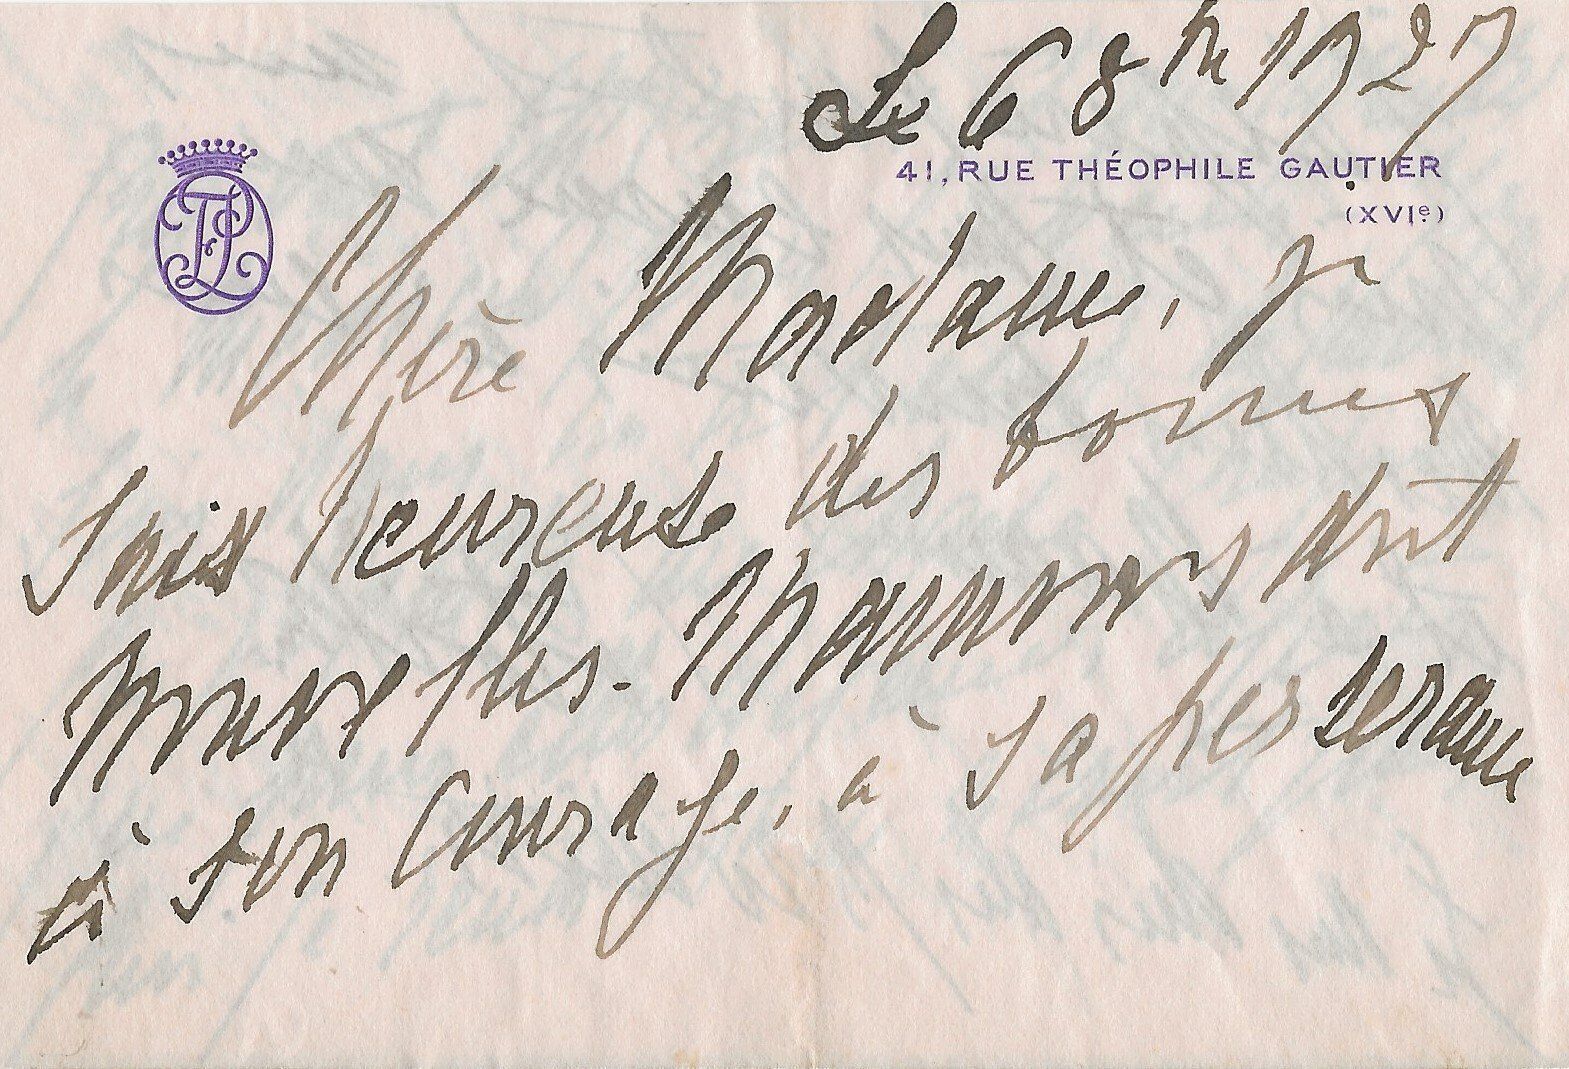 Le 6 8bre 1927
41, RUE THÉOPHILE GAUTIER
(XVIe)
Chère Madame, je
suis heureuse des bonnes
nouvelles. Maurras doit
à son courage, à sa